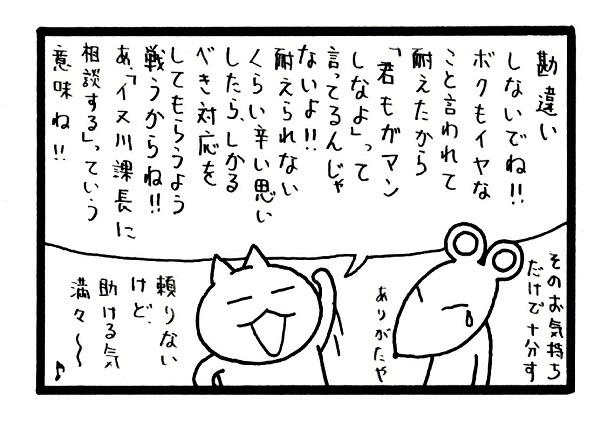 勘違い
しないでね!!
ボクもイヤな
こと言われて
耐えたから
「君もガマン
しなよ」って
言ってるんじゃ
ないよ!!
耐えられない
くらい辛い思い
したら、しかる
べき対応を
してもらうよう
戦うからね!!
あ、「イヌ川課長に
相談する」っていう
意味ね!!
そのお気持ち
だけで十分す
ありがたや
頼りない
けど、
助ける気
満々〜〜♪